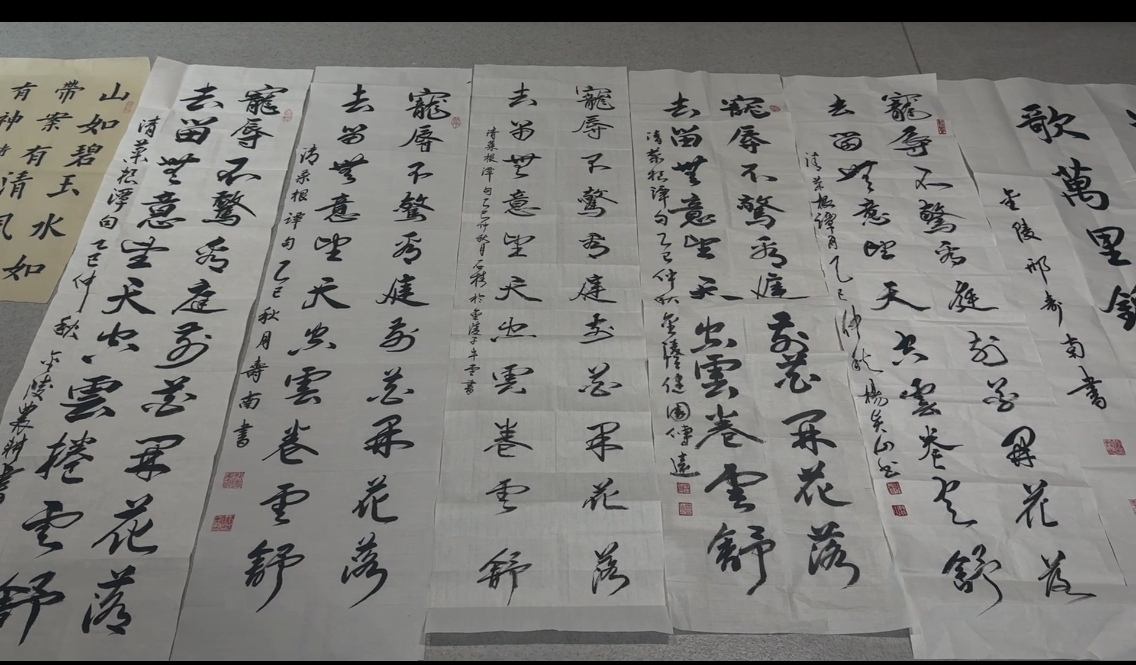 歌萬里
金陵邢壽南書
寵辱不驚看庭前花開花落
去留無意望天空雲卷雲舒
清菜根譚句乙巳仲秋楊山
寵辱不驚看庭前花開花落
去留無意望天空雲卷雲舒
清菜根譚句乙巳仲秋金陵園偉遠
寵辱不驚看庭前花開花落
去留無意望天空雲卷雲舒
清菜根譚句乙巳仲秋月石於金陵子午雲書
寵辱不驚看庭前花開花落
去留無意望天空雲卷雲舒
清菜根譚句乙巳秋月壽南書
寵辱不驚看庭前花開花落
去留無意望天空雲捲雲舒
清菜根譚句乙巳仲秋金陵農耕書
山如碧玉水如
帶案有清風
有神